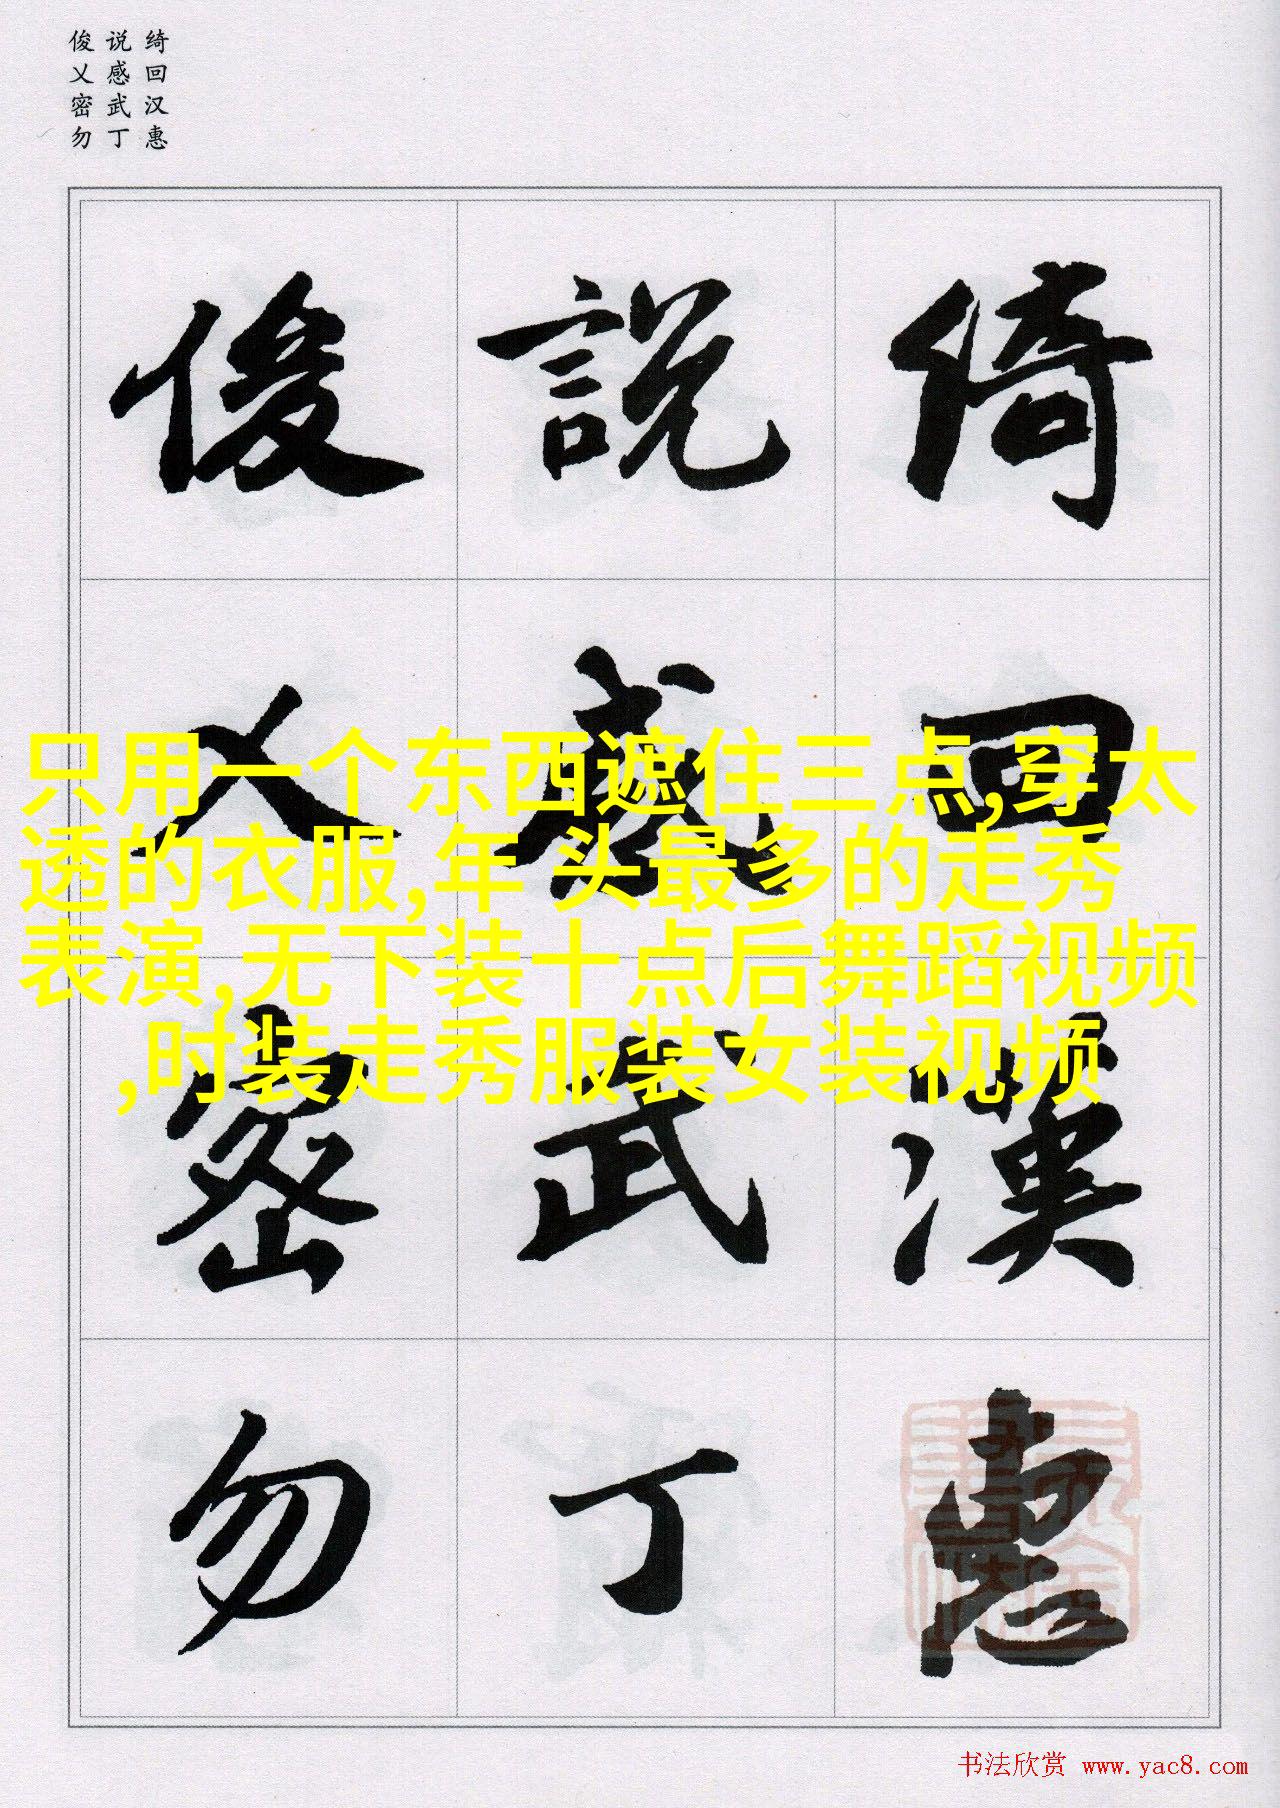 绮回汉惠
说感武丁
俊乂密勿
綺回漢惠
説感武丁
俊乂密勿
只用一个东西遮住三点,穿太
透的衣服,年 头最多的走秀
表演,无下装十点后舞蹈视频
,时装走秀服装女装视频
书法欣赏 www.yac8.com